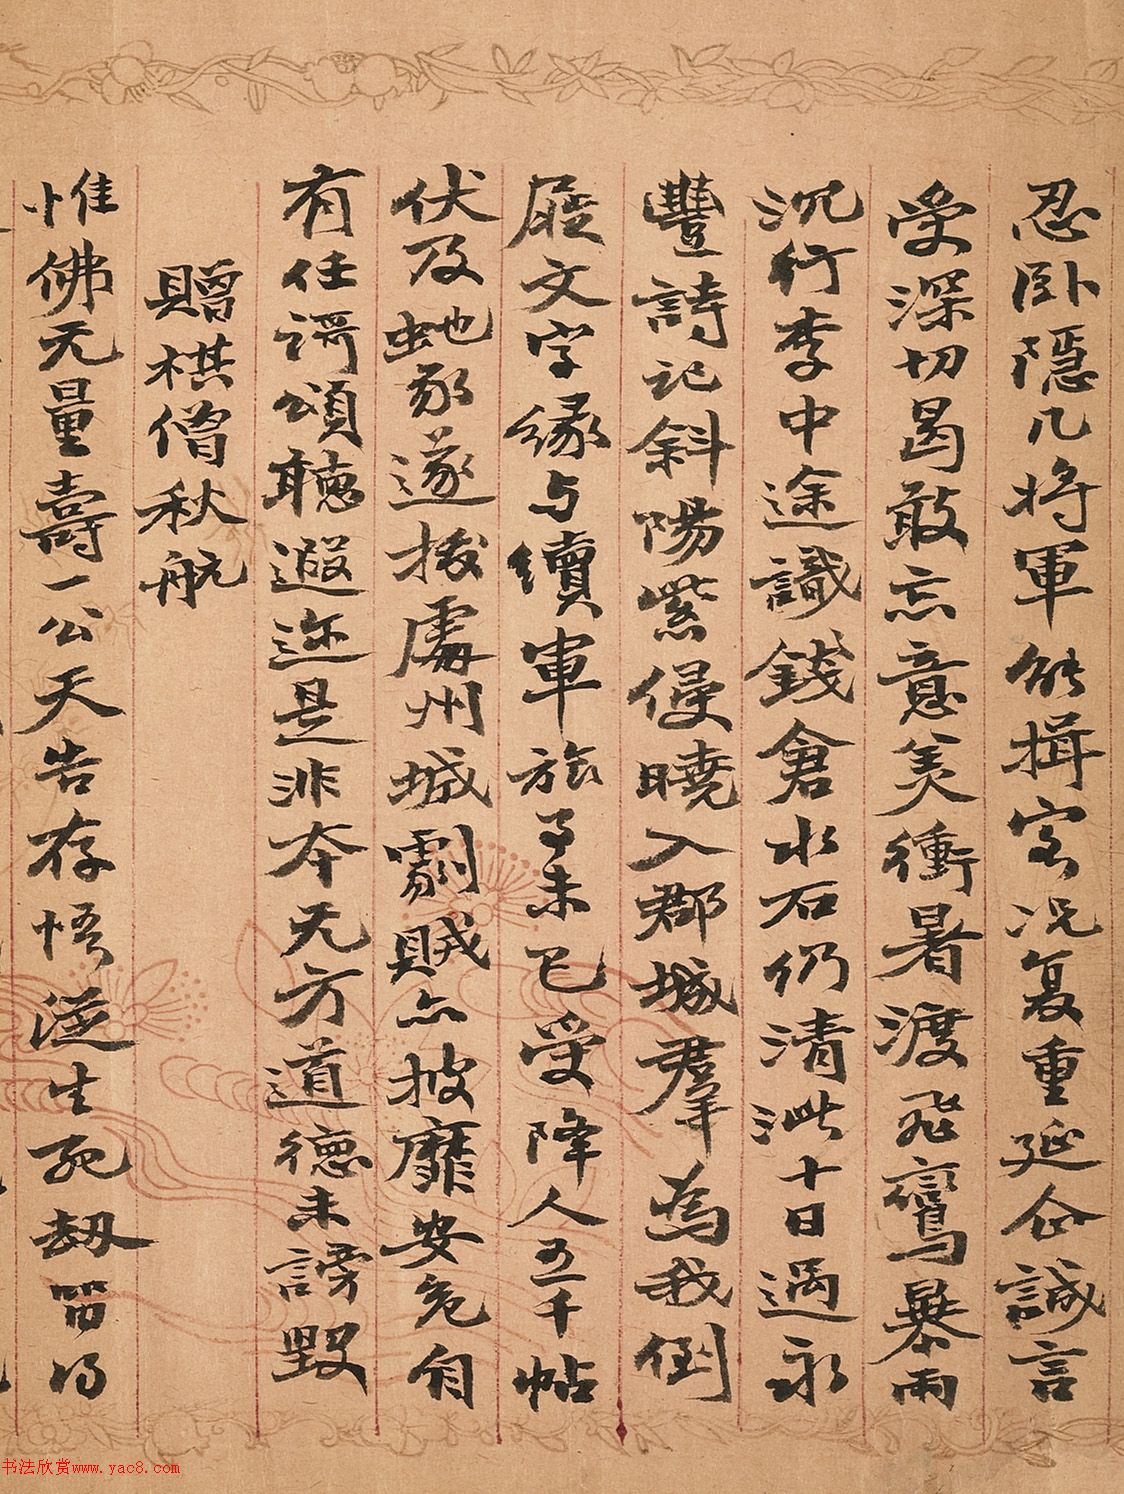 忍卧隱几將軍能揖客况复重延企誠言
受深切曷敢忘意美衝暑渡飛鸞暴雨
沉行李中途識錢倉水石仍清泚十日過永
豐詩記斜陽紫侵曉入郡城羣為我倒
屣文字緣与續軍旅事未已受降人五千帖
伏及虵豕遂拔處州城劇賊亦披靡安危自
有任謌頌聽遐迩是非夲无方道德未謗毀
贈棋僧秋航
惟佛无量壽一公天告存悟澄生死劫留得
书法欣赏www.yac8.com